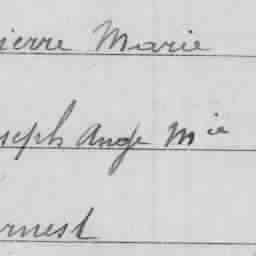 ierre Marie
seph Ange Mie
rnest